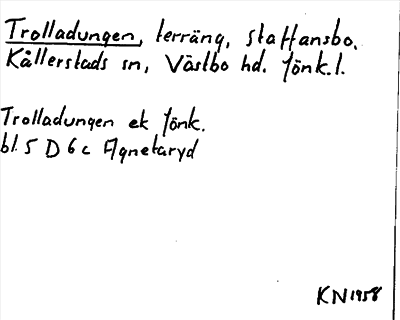 Trolladungen, terräng, Staffansbo.
Kållerstads sn, Västbo hd. Jönk.l.
Trolladungen ek Jönk.
bl. 5 D 6 c Agnetaryd
KN 1958